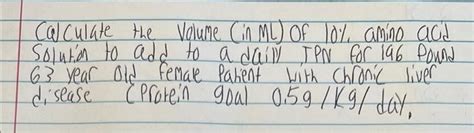 Calculate the Volume (in ML) OF 10% amino acid
Solution to add to a daily TPN for 196 Pound
63 year Old Female Patient with Chronic liver
disease (Protein goal 0.5g/Kg/day.